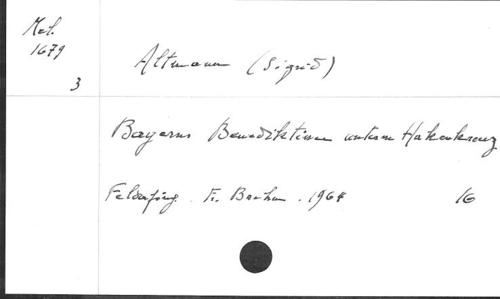 Mel.
1679
3
Altmann (Sigrid)
Bayerns Benediktiner unterm Hakenkreuz
Feldafing. Fr. Brehm. 1964 16